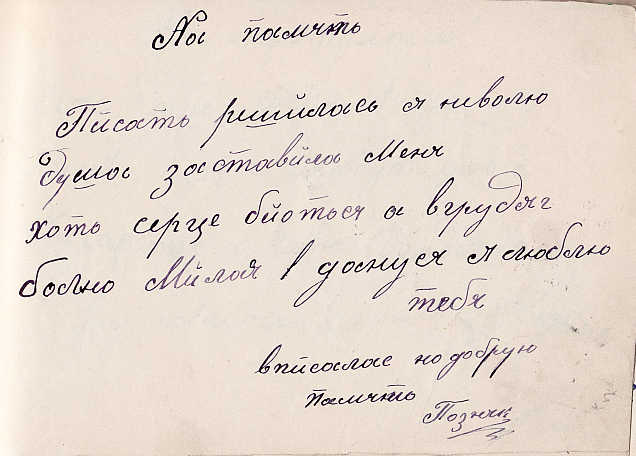 На памчть
Писать ришилась я ниволю
Душа заставила меня
хоть серце бйоться а вгрудях
больно Милая дануся я люблю
тебя
вписалас на добрую
памчть
Позняк